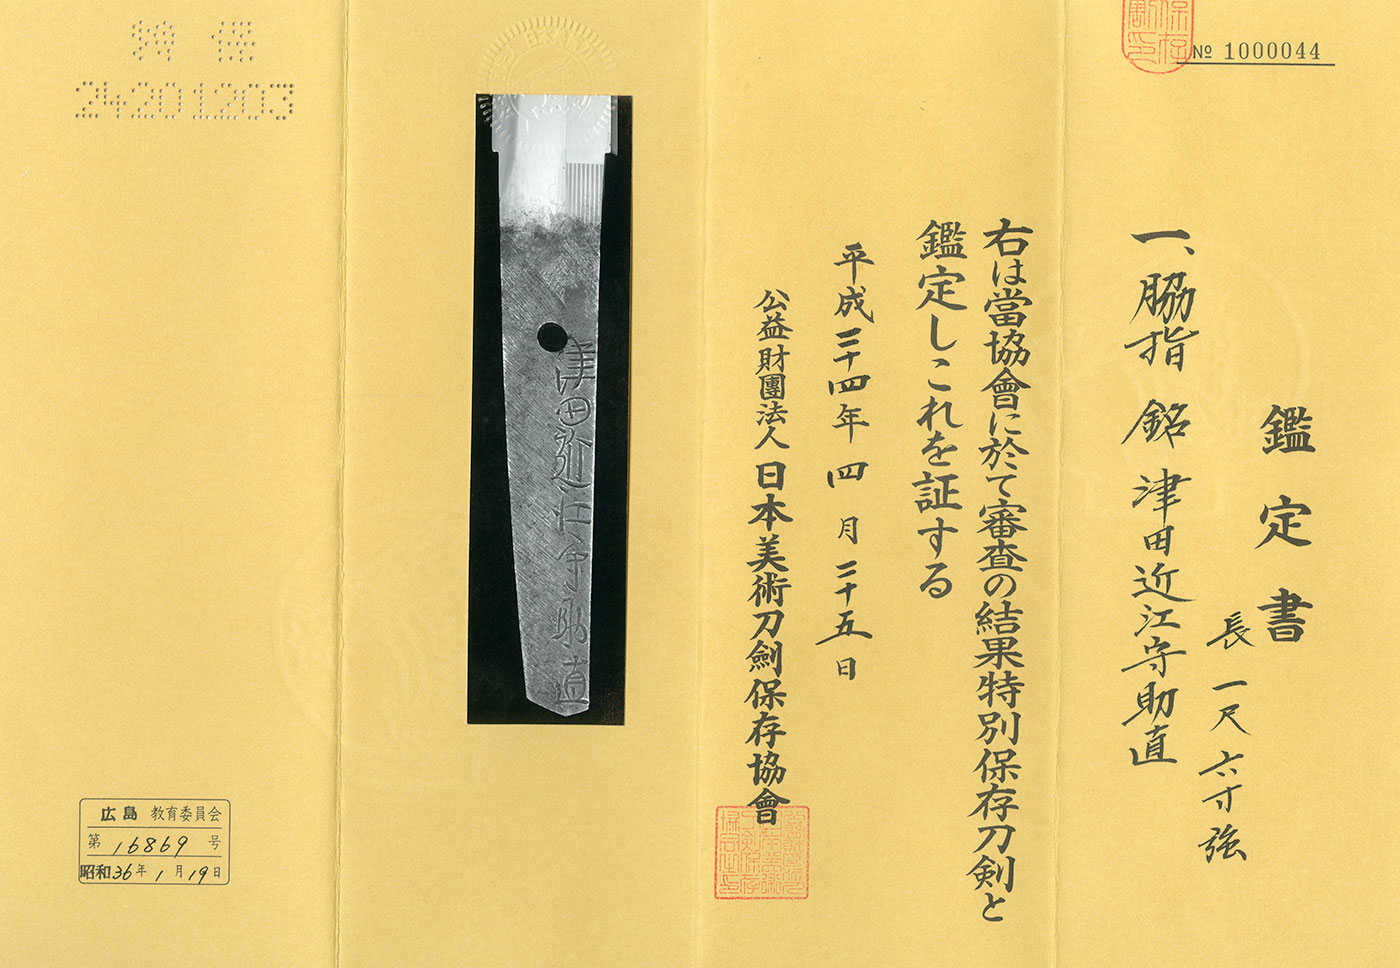 № 1000044
鑑定書
一、脇指 銘 津田近江守助直
長一尺六寸強
右は當協會に於て審査の結果特別保存刀剣と
鑑定しこれを証する
平成二十四年四月二十五日
公益財團法人日本美術刀劍保存協會
津田近江守助直
特保
24201203
広島 教育委員会
第16869号
昭和36年1月19日